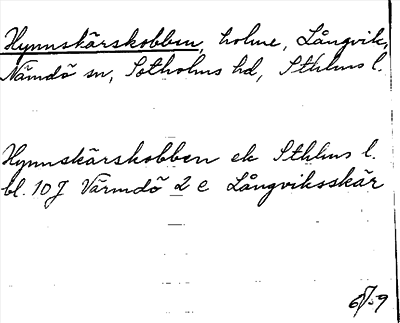 Hynnskärskobben, holme, Långvik,
Nämdö sn, Sotholms hd, Sthlms l.
Hynnskärskobben ek Sthlms l.
bl. 10 J Värmdö 2 e Långviksskär